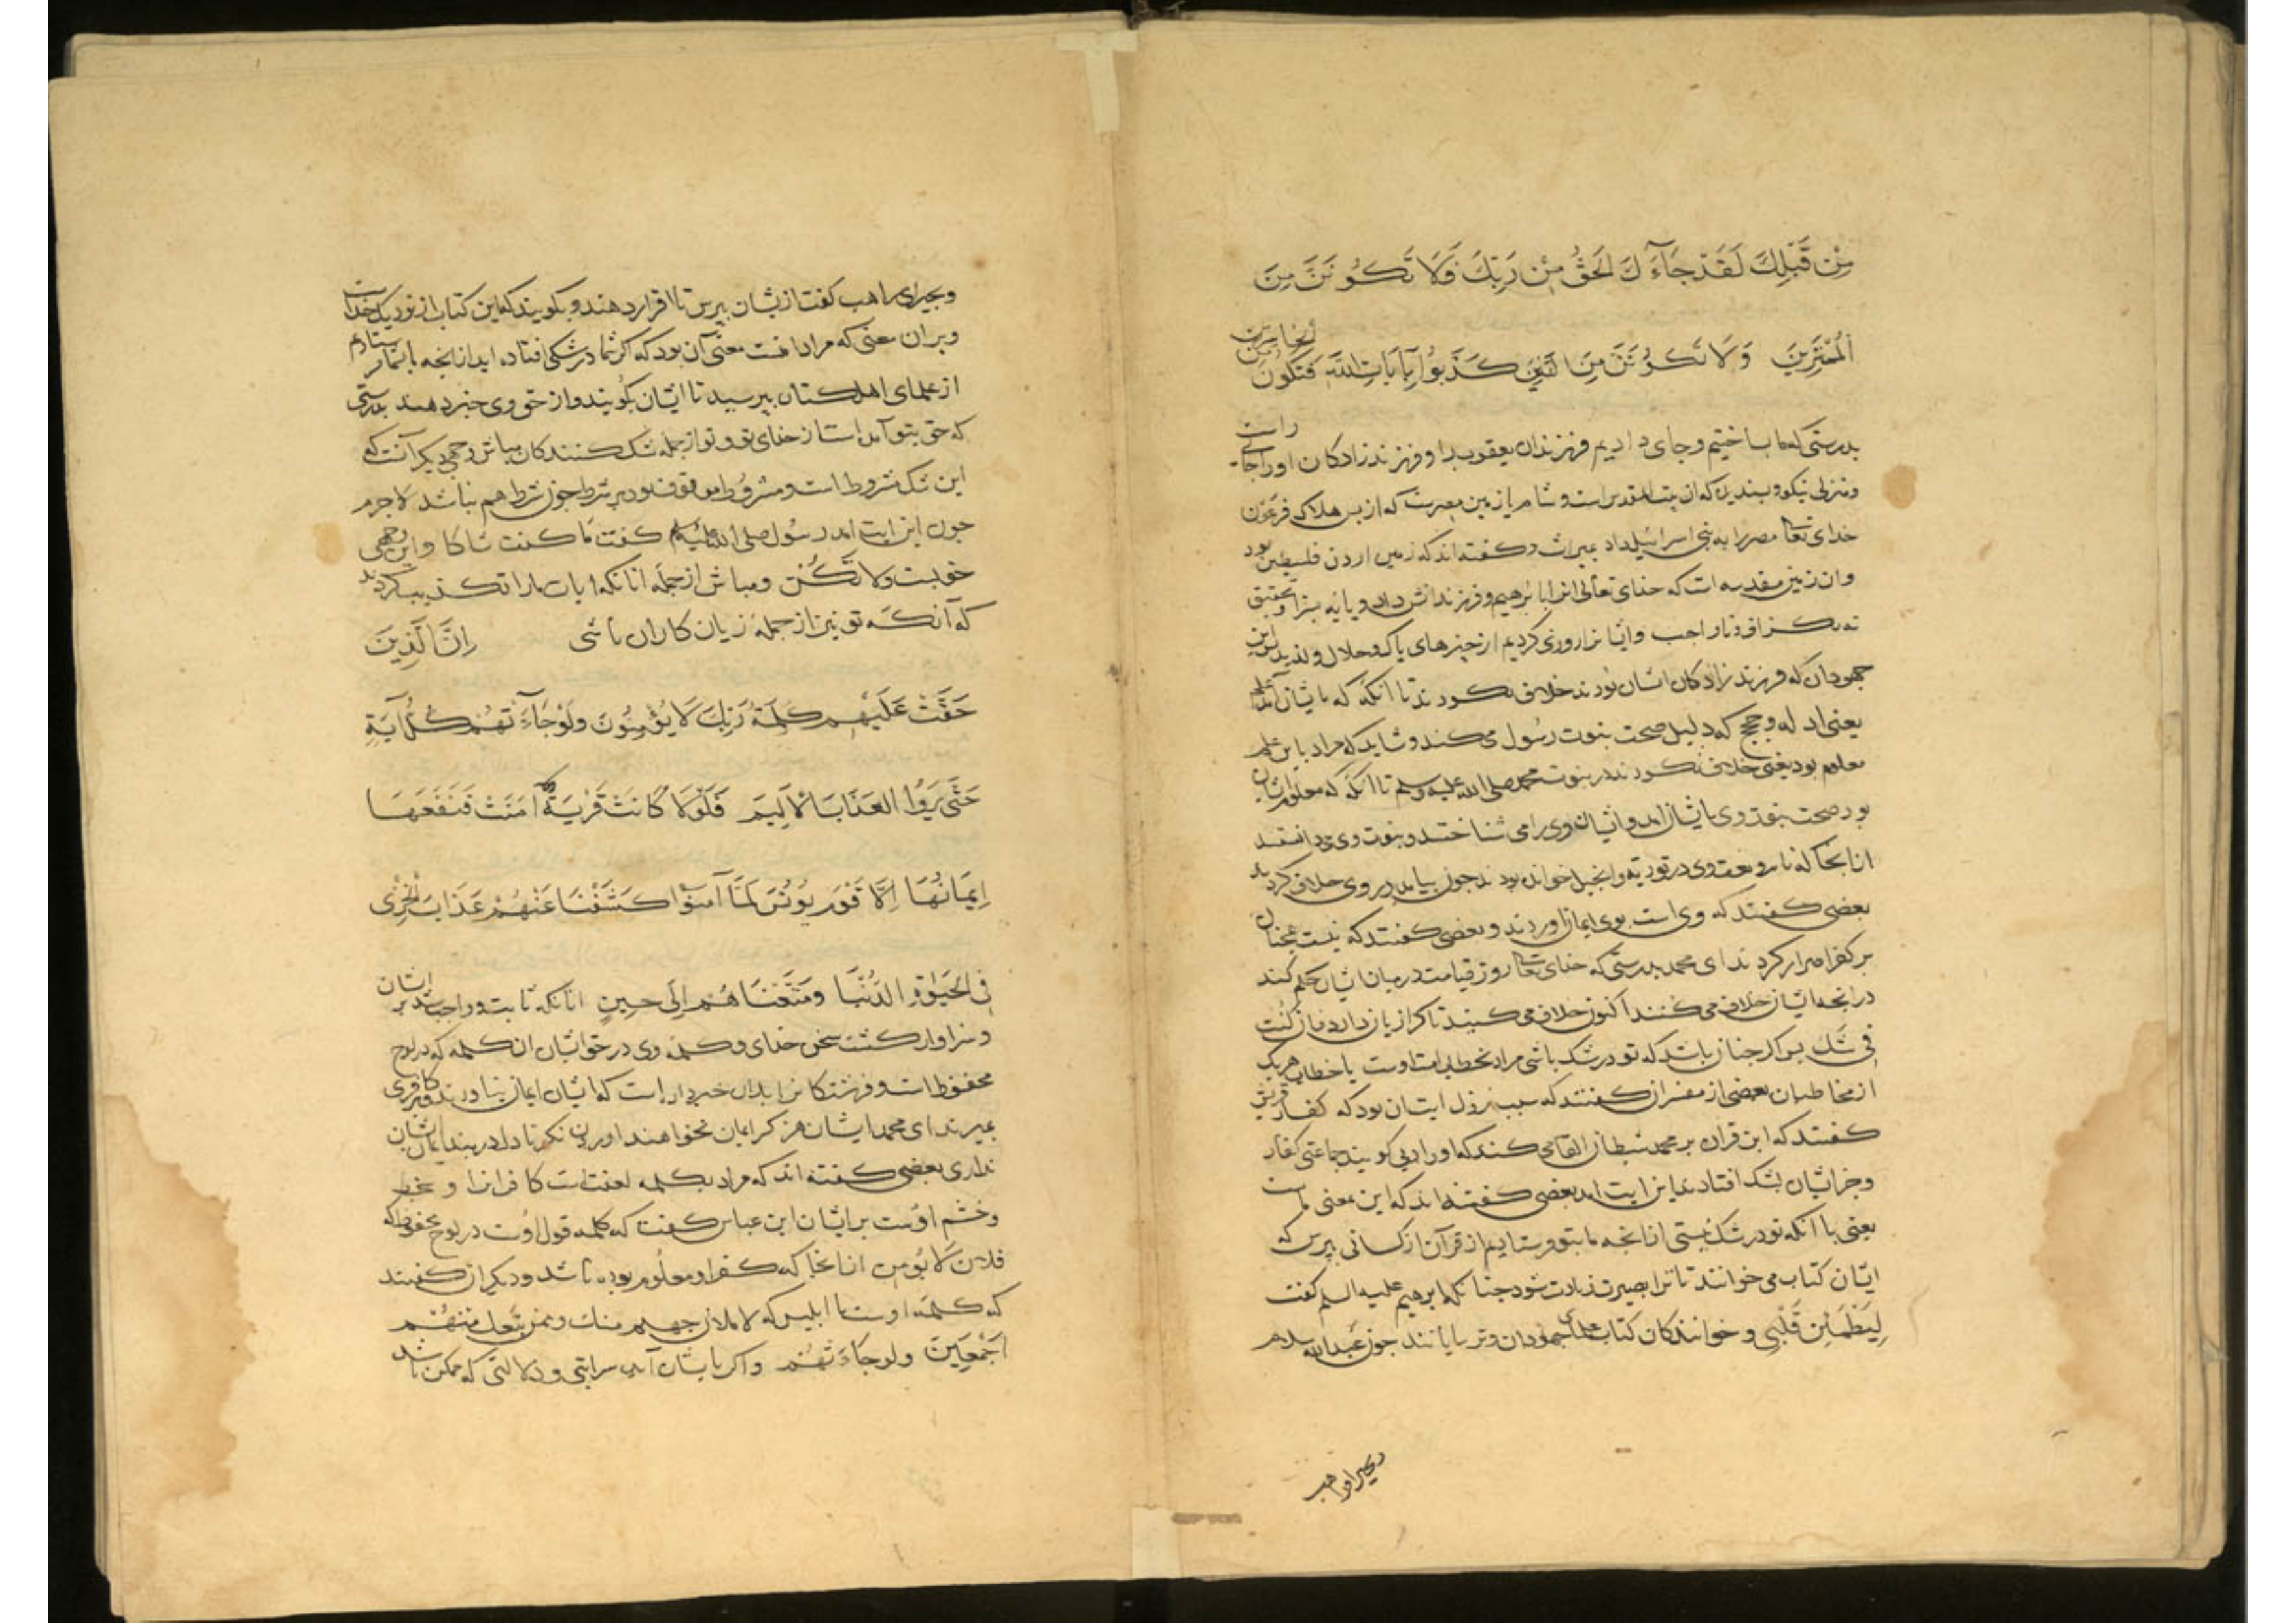 مِنْ قَبْلِكَ لَقَدْ جَآءَكَ الحَقُّ مِنْ رَبِّكَ فَلَا تَكُونَنَّ مِنَ
اَلْمُمْتَرِينَ وَلَا تَكُونَنَّ مِنَ الَّذِينَ كَذَّبُوا بِآيَاتِ اللَّهِ فَتَكُونَ مِنَ الخَاسِرِينَ
بدرستی که ما بساختیم و جای دادیم فرزندان یعقوب را و فرزند زادکان اورا جای راست
ومنزلی نیکو و بسندیده که ان بیت المقدس است و شام یا زمین مصرست که از بس هلاک فرعون
خدای تعا مصر را به بنی اسرائیل داد بمیراث و کفته اند که زمین اردن فلسطین بود
وان زمین مقدسه است که خدای تعالی انرا بابرهیم و فرزندانش داد و
وایشانرا روزی کردیم از خیزهای باک و حلال و لذید این
جهودان که فرزند زادکان ایشان بودند خلاف نکردند تا انکه که بایشان آمد علم
یعنی ادله و حجج که دلیل صحت نبوت رسول می کند و شاید که مراد باین علم
معلوم بود یعنی خلاف نکردند در نبوت محمد صلی الله علیه وسلم تا انکه که معلوم ایشان
بود صحت نبوت وی بایشان امد و ایشان وی را می شناختند و نبوت وی می دانستند
از انجا که نام و نعت وی در توریة و انجیل خوانده بودند جون بیامد در وی خلاف کردند
بعضی کفتند که وی است بوی ایمان اوردند و بعضی کفتند که نیست همچنان
بر کفر اصرار کردند ای محمد بدرستی که خدای تعا روز قیامت در میان ایشان حکم کند
در انجه ایشان خلاف می کنند اکنون خلاف می کنند تا کرا زیان دارد فان كُنْت
فِی شَكّ بس اکر جنان باشد که تو در شک باشی مراد بخطاب امت اوست یا خطاب هریک
از مخاطبان بعضی از مفسران کفتند که سبب نزول ایت ان بود که کفار قریش
کفتند که این قران بر محمد شیطان القا می کند که اورا کویند جماعتی کفار
وجز ایشان بشک افتادند این ایت امد بعضی کفته اند که این معنی است
یعنی با آنکه تو در شک نیستی از انجه ما بتو فرستادیم از قرآن از کسانی ببرس که
ایشان کتاب می خوانند تا ترا بصیرت زیادت شود جنانکه ابرهیم علیه السلم کفت
لِیَطْمَئِنَّ قَلْبِی و خوانندکان کتاب علمای جهودان و ترسایانند جون عبدالله سلام
وبحیرا راهب
وبحیرای راهب کفت از یشان ببرس تا اقرار دهند و بکویند که این کتاب از نزدیک خدا است
وبران معنی که مراد امت معنی آن بود که اکر شما در شکی افتاده اید از انجه با شما فرستادم
از علمای اهل کتاب ببرسید تا ایشان بکویند و از حق وی خبر دهند بدرستی
که حق بتو آمده است از خدای تو و تو از جمله شک کنندکان مباش وجهی دیکر آنست که
این شک مشروط است و مشروط موقوف بود بر شرط جون شرط هم نباشد لا جرم
جون این ایت امد رسول صلی الله علیه وسلم کفت مَا کنت شاکا و این وجهی
خوبست ولا تَكُنْ و مباش از جمله انانکه ایات مارا تکذیب کردند
که آنکه تو نیز از جمله زیان کاران باشی اِنَّ الَّذِينَ
حَقَّتْ عَلَيْهِمْ كَلِمَةُ رَبِّكَ لَا يُؤْمِنُونَ وَلَوْ جَاءَتْهُمْ كُلُّ آيَةٍ
حَتَّى يَرَوُا العَذَابَ الْأَلِيمَ فَلَوْلَا كَانَتْ قَرْيَةٌ آمَنَتْ فَنَفَعَهَا
إِيمَانُهَا إِلَّا قَوْمَ يُونُسَ لَمَّا آمَنُوا كَشَفْنَا عَنْهُمْ عَذَابَ الْخِزْيِ
فِي الْحَيَوةِ الدُّنْيَا وَمَتَّعْنَاهُمْ إِلَى حِينٍ انانکه ثابت و واجب شد بر ایشان
و سزاوار کشت سخن خدای و کلمه وی در حق ایشان ان کلمه که در لوح
محفوظ است و فرشتکانرا بدان خبر داده است که ایشان ایمان نیاورند و بر کافری
میرند ای محمد ایشان هرکز ایمان نخواهند اوردن نکر تا دل در بند ایمان ایشان
نداری بعضی کفته اند که مراد بکلمه لعنت است کافرانرا و
وخشم اوست بر ایشان ابن عباس کفت که کلمه قول اوست در لوح محفوظ که
فلان لَا یُؤمن از انجا که کفر او معلوم بوده باشد و دیکران کفتند
که کلمه اوست با ابلیس که لاملان جهنم منك و ممن تبعك منهم
اَجْمَعِينَ ولو جَاءَتهُم و اکر بایشان آید هر ایتی و دلالتی که ممکن باشد